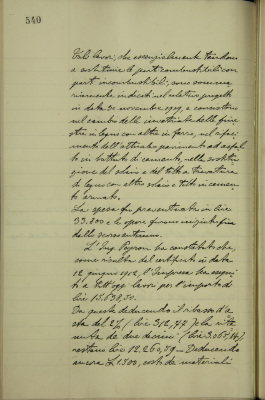 540
Tali lavori, che essenzialmente tendono
a sostituire le parti combustibili con
parti incombustibili, sono sommariamente
indicati nel relativo progetto
in data 30 novembre 1909, e consistono
nel cambio delle invetriate delle fine
stre in legno con altre in ferro, nel rifaci
mento dell'attuale pavimento ad asfal
to in battuto di cemento, nella sostitu
zione del solaio e del tetto a travatura
di legno con altro solaio e tetto in cemen
to armato.
La spesa fu preventivata in lire
33.800 e le opere furono eseguite fin
dallo scorso autunno.
L'Ing. Peyron ha constatato che,
come risulta dal certificato in data
12 giugno 1912, l'Impresa ha esegui
ti a tutt'oggi lavori per l'importo di
lire 15.638,50.
Da queste deducendo il ribasso d'a
sta del 2% (lire 312,77) e la rite
nuta di due decimi (lire 3.065,14)
restano lire 12.260,59. Deducendo
ancora L. 1500, costo de' materiali